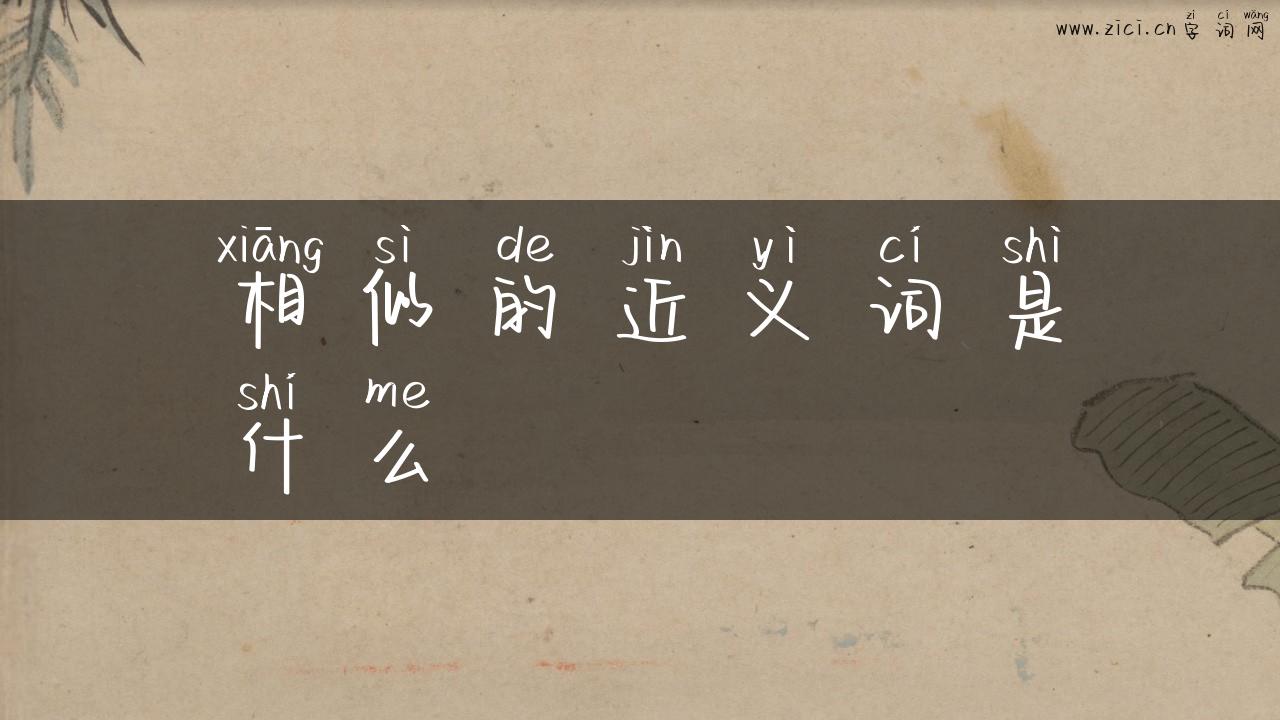 zì cí wǎng
www.zici.cn 字 词 网
xiāng sì de jìn yì cí shì
相 似 的 近 义 词 是
shí me
什 么